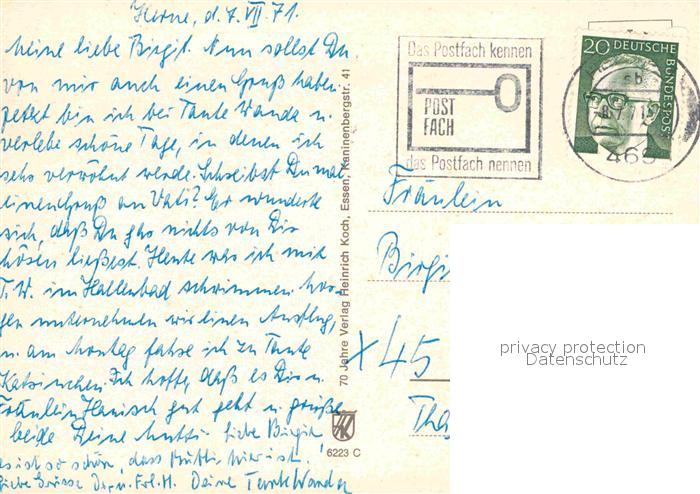 Herne, d. 7. VII 71.
Meine liebe Birgit. Nun sollst Du
von mir auch einen Gruß haben.
Jetzt bin ich bei Tante Wanda u.
verlebe schöne Tage, in denen ich
sehr verwöhnt werde. Schreibst Du mal
einen Gruß an Vati? Er wunderte
sich, daß Du gar nichts von Dir
hören ließest. Heute war ich mit
T. W. im Hallenbad schwimmen. Mor-
gen unternehmen wir einen Ausflug,
u. am Montag fahre ich zu Tante
Kätzinchen. Ich hoffe, daß es Dir u.
Fräulein Hanisch gut geht u. grüße
beide Deine Mutti. Liebe Birgit,
es ist so schön, dass Mutti hier ist.
Liebe Grüsse Dir u. Frl. H. Deine Tante Wanda
70 Jahre Verlag Heinrich Koch, Essen, Kaninenbergstr. 41
6223 C
Das Postfach kennen
POST
FACH
das Postfach nennen
20 DEUTSCHE
BUNDESPOST
sb
465
Fräulein
Birgi
X 45
Tha
privacy protection
Datenschutz